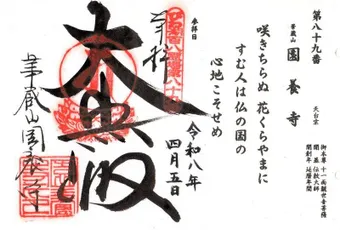 第八十九番
華蔵山 園養寺 天台宗
御本尊 十一面観世音菩薩
開基 伝教大師
開創年 延暦年間
咲きちらぬ 花くらやまに
すむ人は仏の国の
心地こそせめ
参拝日
令和八年
四月五日
奉拝
大悲殿
華蔵山園養寺